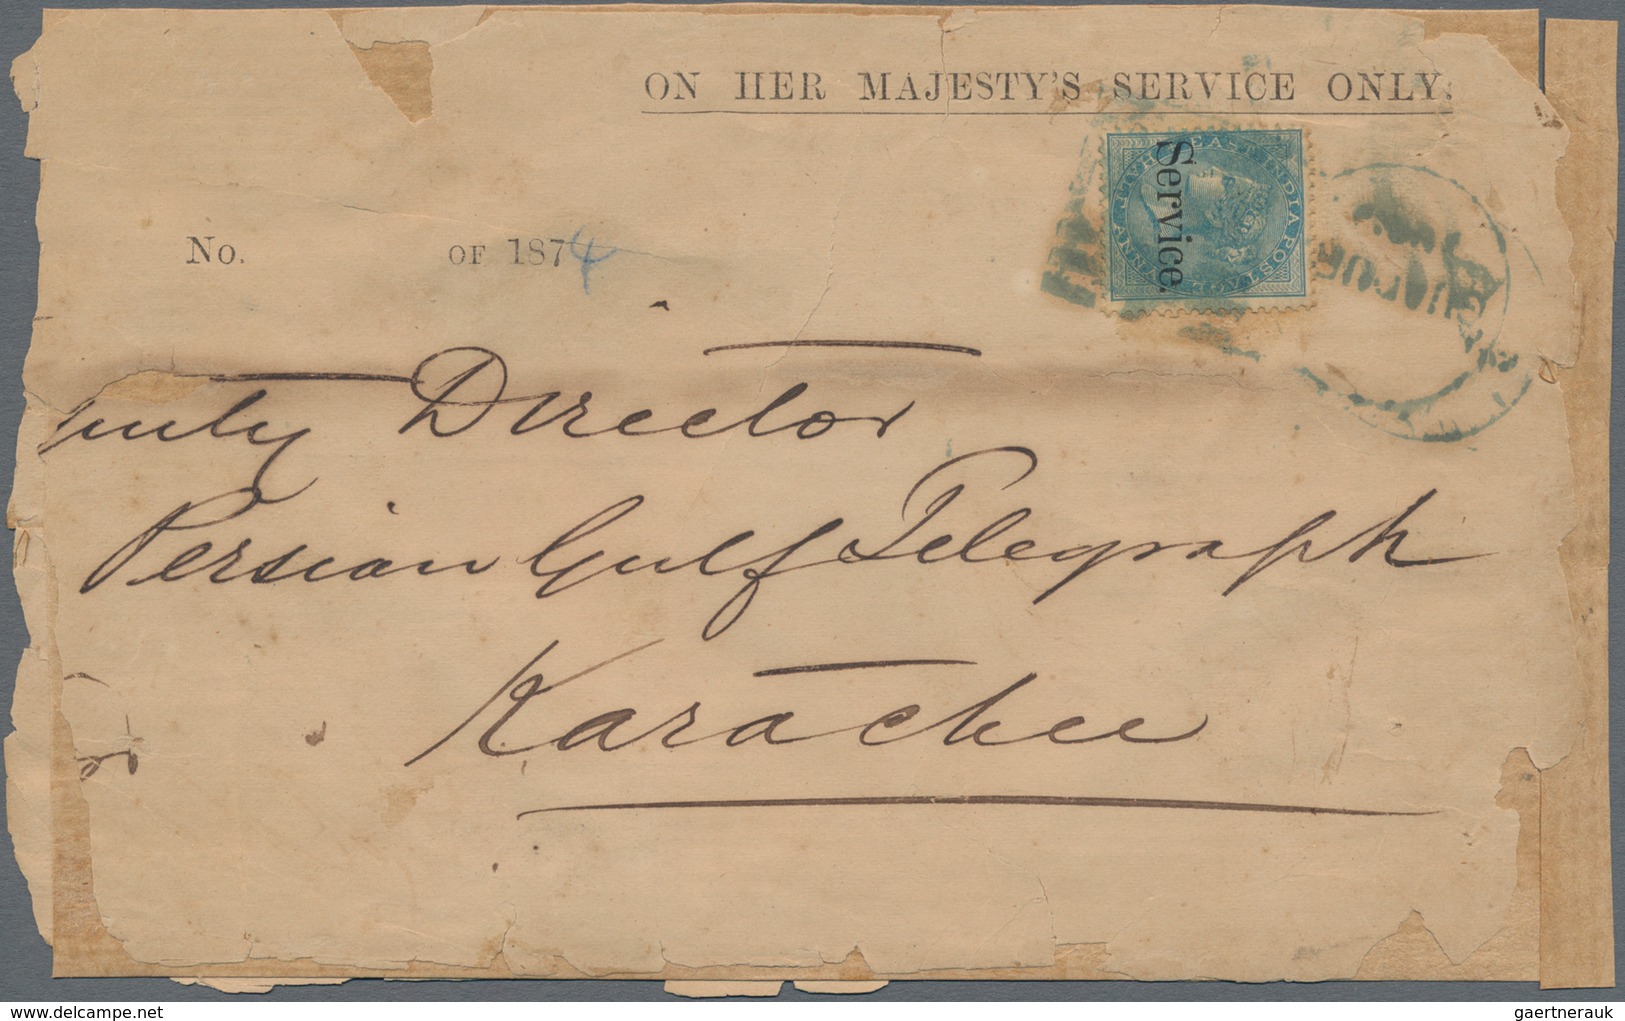 ON HER MAJESTY'S SERVICE ONLY.
Service.
EAST INDIA POSTAGE
HALF ANNA
No. OF 1874
Director
Persian Gulf Telegraph
Karachee
delcampe.net
gaertnerauk